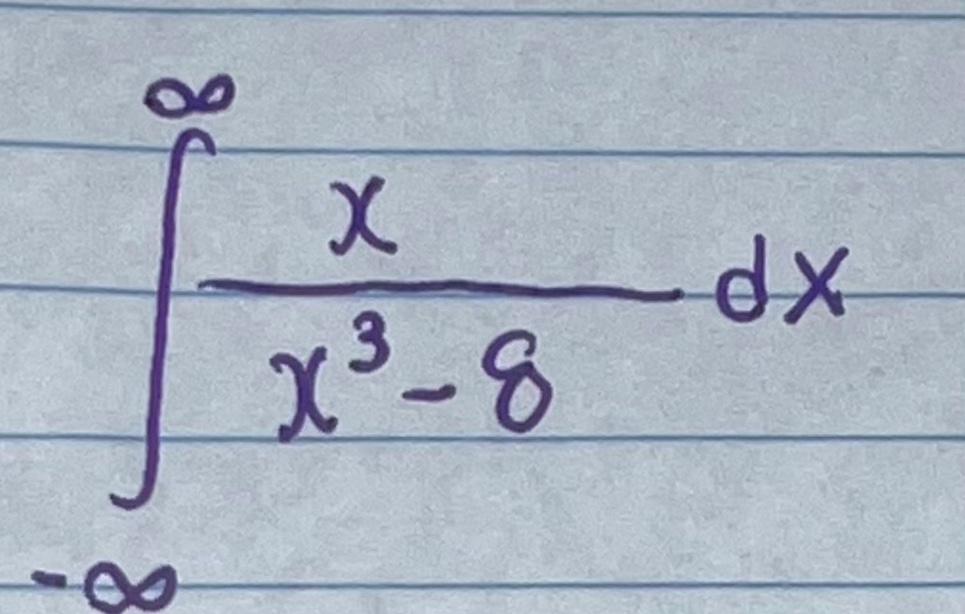 \int_{-\infty}^{\infty} \frac{x}{x^3 - 8} dx